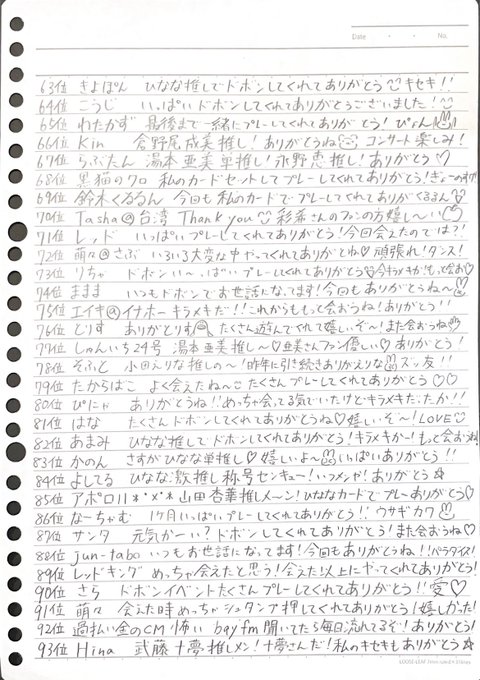 Date ・ ・ No.
63位 きよぽん ひなな推しでドボンしてくれてありがとう キセキ!!
64位 こうじ いっぱいドボンしてくれてありがとうございました!
65位 わたかず 最後まで一緒にプレーしてくれてありがとう! ぴょん
66位 Kin 倉野尾成美推し! ありがとうね コンサート楽しみ!
67位 らぶたん 湯本亜美単推し! 永野恵推し! ありがとう♡
68位 黒猫のクロ 私のカードセットしてプレーしてくれてありがとう!
69位 鈴木くるるん 今回も私のカードでプレーしてくれてありがくるるん
70位 Tasha@台湾 Thank you 彩希さんのファンの方嬉し〜い
71位 レッド いっぱいプレーしてくれてありがとう! 今回会えたのでは?!
72位 萌々@さぶ いろいろ大変な中やってくれてありがとね♡ 頑張れ! ダンス!
73位 りちゃ ドボンい〜っぱいプレーしてくれてありがとう 今キラメキか! もっと会お♡
74位 ままま いつもドボンでお世話になってます! 今回もありがとうね〜
75位 エイキ@イナホー キラメキだ!! これからもっと会おうね! ありがとう!!
76位 とりす ありがとりす たくさん遊んでくれて嬉しいぞ〜! また会おうね
77位 しゅんいち24号 湯本亜美推し〜♡ 亜美さんファン優しい♡ ありがとう!
78位 そふと 小田えりな推しの〜! 昨年に引き続きありがえりな ズッ友!!
79位 たからばこ よく会えたね〜 たくさんプレーしてくれてありがとう♡♡
80位 ぴにゃ ありがとうね!! めっちゃ会ってる気でいたけどキラメキだったか!!
81位 はな たくさんドボンしてくれてありがとうね♡ 嬉しいぞ〜! LOVE
82位 あまみ ひなな推しでドボンしてくれてありがとう! キラメキか〜! もっと会おうね!
83位 かのん さすがひなな単推し♡ 嬉しいよ〜 いっぱいありがとう!!
84位 よしてる ひなな激推し称号センキュー! いつメンが! ありがとう☆
85位 アポロ11*˙×˙* 山田杏華推しメ〜ン! ひななカードでプレーありがとう♡
86位 なーちゃむ 1ヶ月いっぱいプレーしてくれてありがとう!! ウサギカワ
87位 サンタ 元気かーい? ドボンしてくれてありがとう! また会おうね♡
88位 jun-tabo いつもお世話になってます! 今回もありがとうね!! パラダイス!
89位 レッドキング めっちゃ会えたと思う! 会えた以上にやってくれてありがとう!
90位 さら ドボンイベントたくさんプレーしてくれてありがとう!! 愛♡
91位 萌々 会えた時めっちゃシュタンプ押してくれてありがとう! 嬉しかった!
92位 過払い金のCM怖い bay fm聞いてたら毎日流れてるぞ! ありがとう!
93位 Hina 武藤十夢推しメン! 十夢さんだ! 私のキセキもありがとう